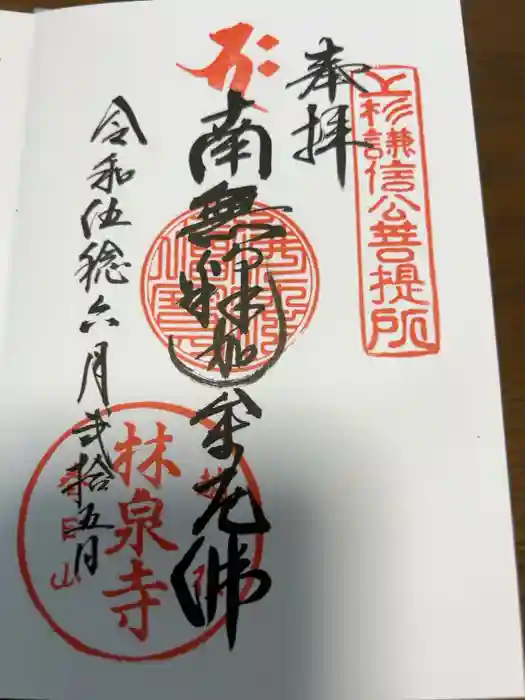 上杉謙信公菩提所
奉拝
南無釈迦牟尼佛
令和伍稔六月弐拾五日
林泉寺
春日山